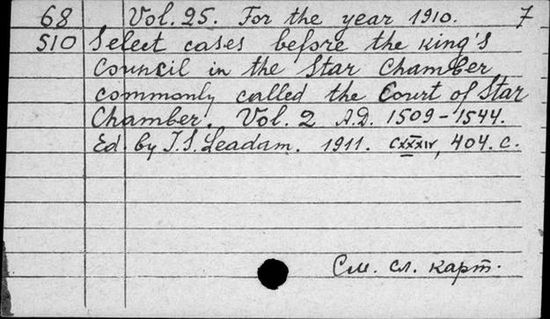 68 Vol. 25. For the year 1910. 7
510 Select cases before the King's
Council in the Star Chamber
commonly called the Court of Star
Chamber. Vol. 2 A.D. 1509-1544.
Ed. by I.S. Leadam. 1911. CXXXIV, 404. c.
См. сл. карт.